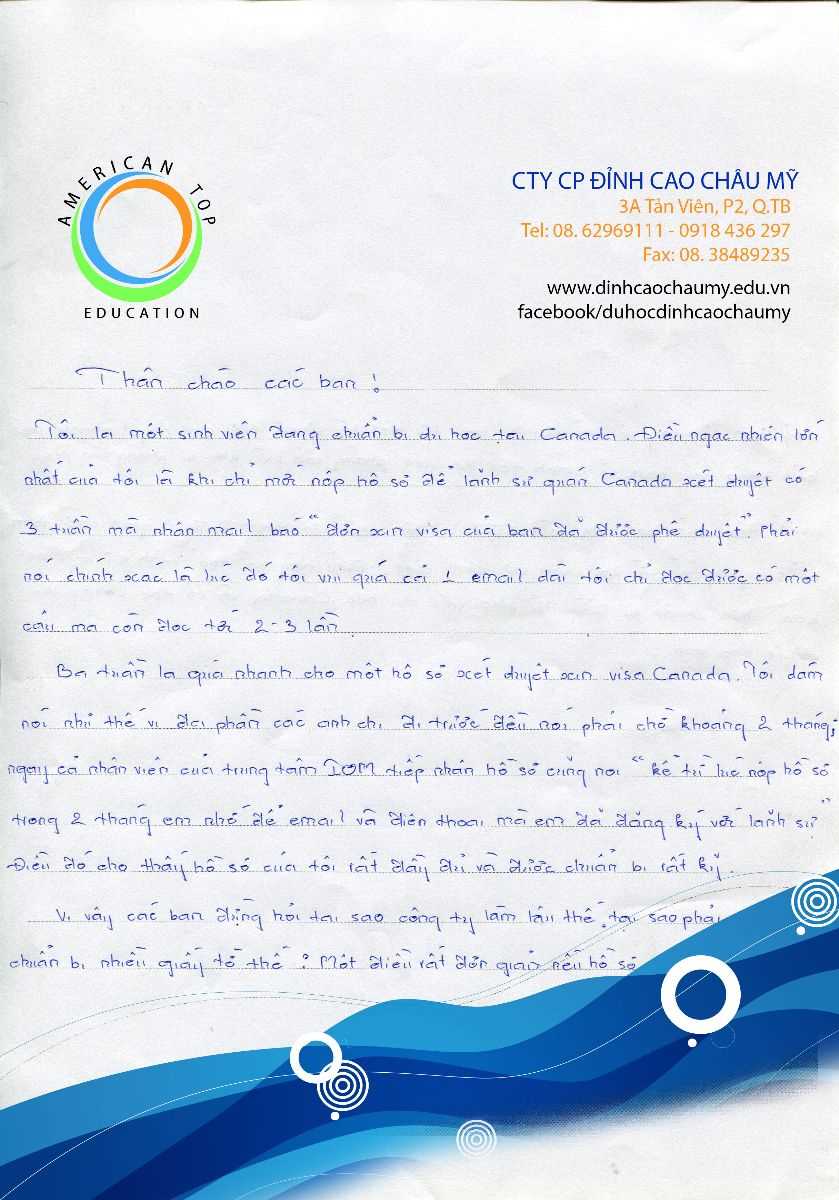 AMERICAN TOP
EDUCATION
CTY CP ĐỈNH CAO CHÂU MỸ
3A Tản Viên, P2, Q.TB
Tel: 08. 62969111 - 0918 436 297
Fax: 08. 38489235
www.dinhcaochaumy.edu.vn
facebook/duhocdinhcaochaumy
Thân chào các bạn !
Tôi là một sinh viên đang chuẩn bị du học tại Canada. Điều ngạc nhiên lớn
nhất của tôi là khi chỉ mới nộp hồ sơ để lãnh sự quán Canada xét duyệt có
3 tuần mà nhận mail báo "đơn xin visa của bạn đã được phê duyệt". Phải
nói chính xác là lúc đó tôi vui quá cả 1 email dài tôi chỉ đọc được có một
câu mà còn đọc tới 2-3 lần
Ba tuần là quá nhanh cho một hồ sơ xét duyệt xin visa Canada. Tôi dám
nói như thế vì đại phần các anh chị đi trước đều nói phải chờ khoảng 2 tháng,
ngay cả nhân viên của trung tâm IOM tiếp nhận hồ sơ cũng nói "kể từ lúc nộp hồ sơ
trong 2 tháng em nhớ để email và điện thoại mà em đã đăng ký với lãnh sự"
Điều đó cho thấy hồ sơ của tôi rất đầy đủ và được chuẩn bị rất kỹ.
Vì vậy các bạn đừng hỏi tại sao công ty làm lâu thế, tại sao phải
chuẩn bị nhiều giấy tờ thế ? Một điều rất đơn giản nếu hồ sơ